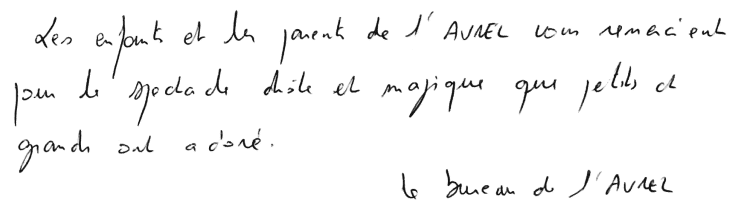 Les enfants et les parents de l'AVREL vous remercient
pour le spectacle drôle et magique que petits et
grands ont adoré.
Le bureau de l'AVREL